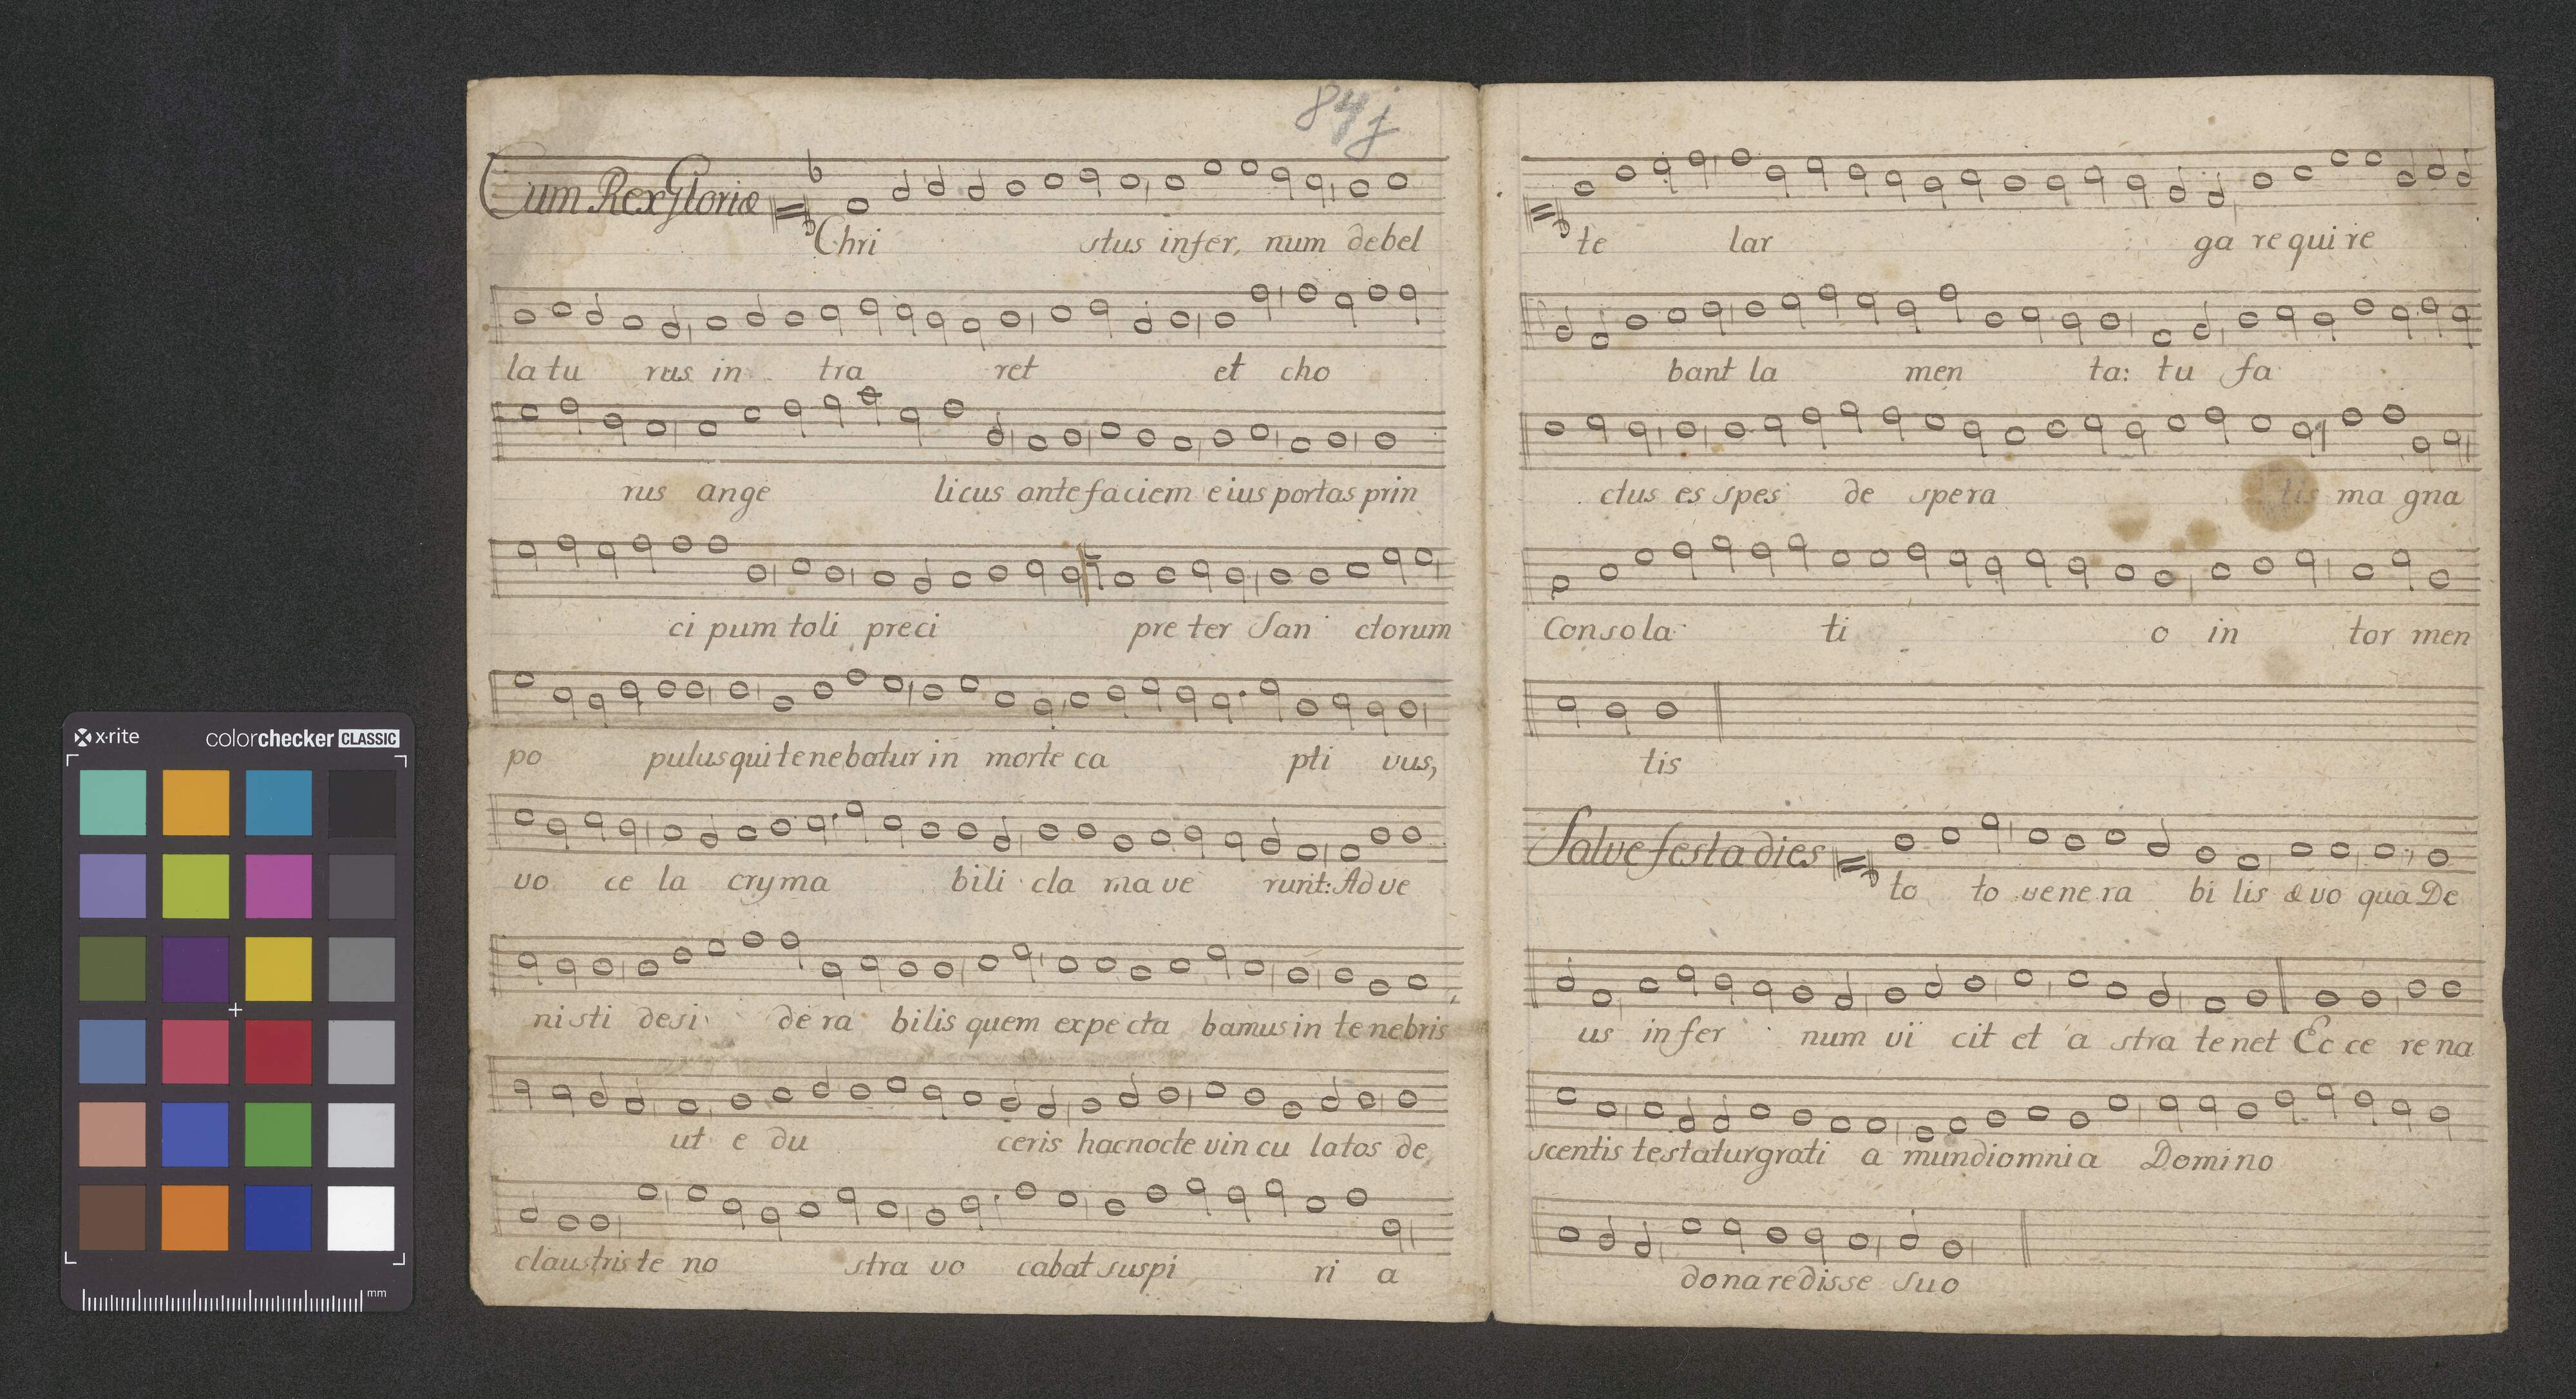 x·rite colorchecker CLASSIC
mm
84j
Cum Rex Gloriæ Chri stus infer, num debel
la tu rus in tra ret et cho
rus ange licus ante faciem eius portas prin
ci pum toli preci pre ter San ctorum
po pulus qui tenebatur in morte ca pti vus,
vo ce la cryma bili cla ma ve runt: Ad ve
nisti desi de ra bilis quem expe cta bamus in tenebris
ut e du ceris hac nocte vin cu latos de
claustris te no stra vo cabat suspi ri a
te lar ga re qui re
bant la men ta: tu fa
ctus es spes de spera tis ma gna
Conso la ti o in tor men
tis
Salve festa dies to to ve ne ra bi lis ævo qua De
us in fer num vi cit et a stra te net Ec ce re na
scentis testatur grati a mundi omni a Domino
dona redisse suo